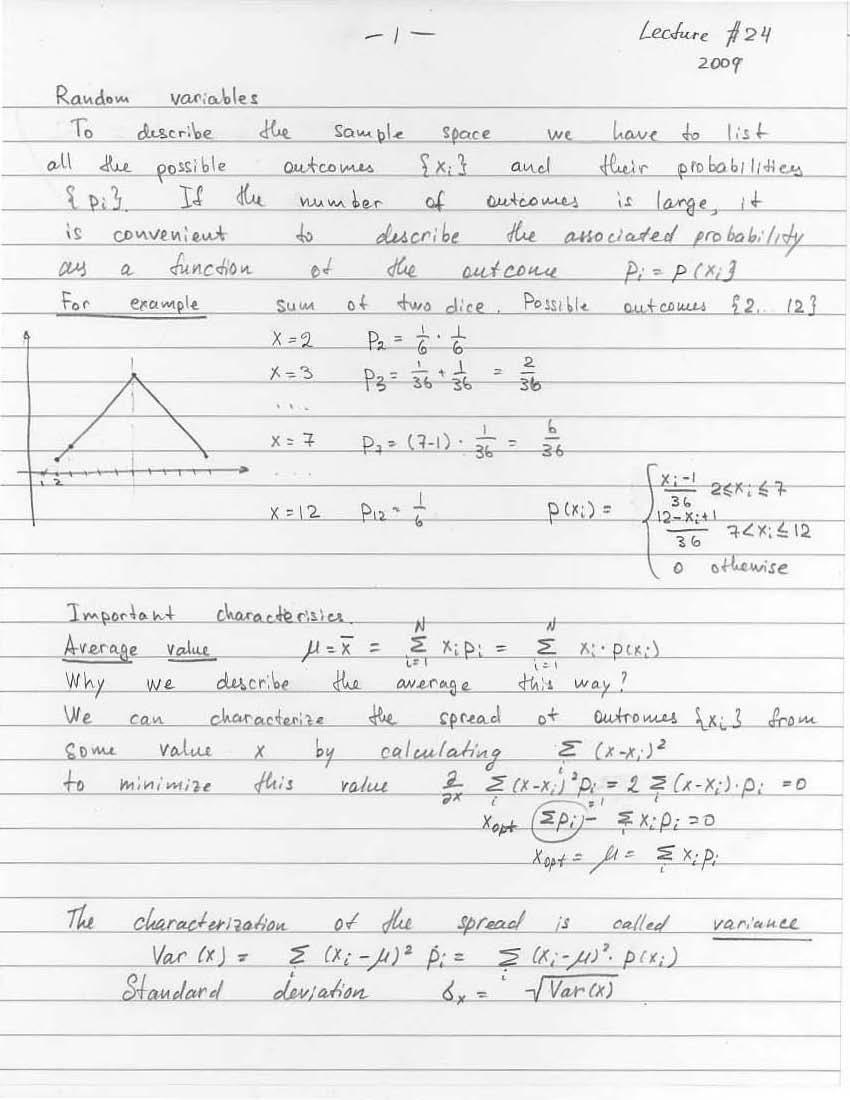 -1-
Lecture #24
2009
Random variables
To describe the sample space we have to list
all the possible outcomes {xᵢ} and their probabilities
{pᵢ}. If the number of outcomes is large, it
is convenient to describe the associated probability
as a function of the outcome pᵢ = p(xᵢ}
For example sum of two dice. Possible outcomes {2... 12}
x = 2 p₂ = 1/6 · 1/6
x = 3 p₃ = 1/36 + 1/36 = 2/36
...
x = 7 p₇ = (7-1) · 1/36 = 6/36
....
x = 12 p₁₂ = 1/6
p(xᵢ) = { (xᵢ-1)/36 2≤xᵢ≤7
(12-xᵢ+1)/36 7<xᵢ≤12
0 othewise
1 2
Important characterisics.
Average value μ = x̄ = Σᵢ₌₁ᴺ xᵢpᵢ = Σᵢ₌₁ᴺ xᵢ · p(xᵢ)
Why we describe the average this way?
We can characterize the spread of outromes {xᵢ} from
some value x by calculating Σᵢ (x-xᵢ)²
to minimize this value ∂/∂x Σᵢ (x-xᵢ)²pᵢ = 2 Σᵢ (x-xᵢ)·pᵢ = 0
xopt (Σpᵢ)⁼¹ - Σᵢ xᵢpᵢ = 0
xopt = μ = Σᵢ xᵢpᵢ
The characterization of the spread is called variance
Var (x) = Σᵢ (xᵢ-μ)² pᵢ = Σᵢ (xᵢ-μ)² · p(xᵢ)
Standard deviation σₓ = √Var(x)